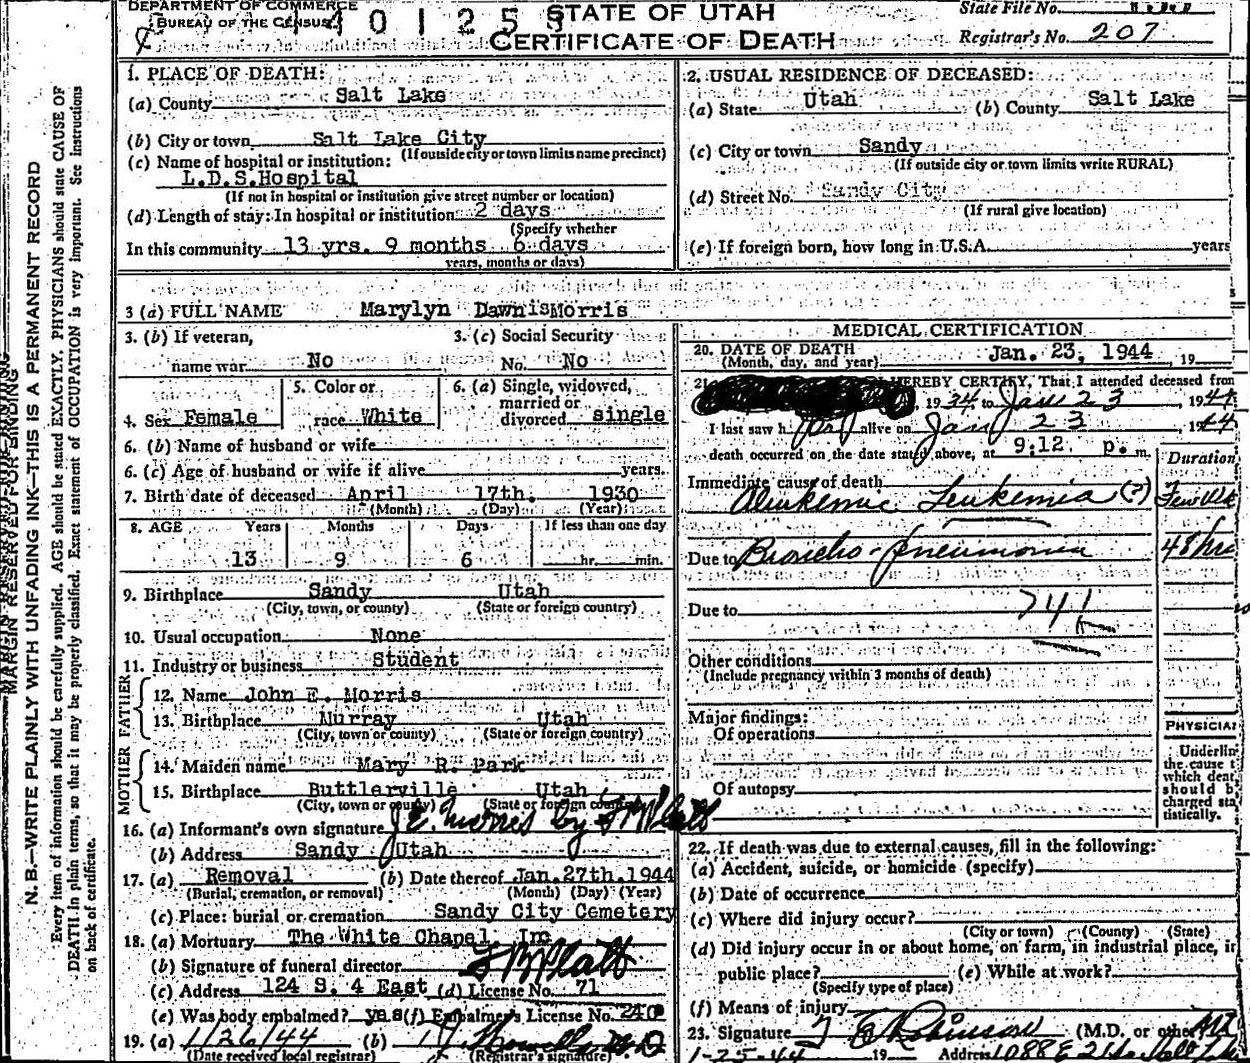 DEPARTMENT OF COMMERCE
BUREAU OF THE CENSUS
STATE OF UTAH
CERTIFICATE OF DEATH
State File No.
Registrar's No. 207
MARGIN RESERVED FOR BINDING
N. B.—WRITE PLAINLY WITH UNFADING INK—THIS IS A PERMANENT RECORD
Every item of information should be carefully supplied. AGE should be stated EXACTLY. PHYSICIANS should state CAUSE OF
DEATH in plain terms, so that it may be properly classified. Exact statement of OCCUPATION is very important. See Instructions
on back of certificate.
1. PLACE OF DEATH:
(a) County Salt Lake
(b) City or town Salt Lake City
(If outside city or town limits name precinct)
(c) Name of hospital or institution:
L.D.S.Hospital
(If not in hospital or institution give street number or location)
(d) Length of stay: In hospital or institution 2 days
(Specify whether
In this community 13 yrs. 9 months 6 days
years, months or days)
2. USUAL RESIDENCE OF DECEASED:
(a) State Utah (b) County Salt Lake
(c) City or town Sandy
(If outside city or town limits write RURAL)
(d) Street No. Sandy City
(If rural give location)
(e) If foreign born, how long in U.S.A. years
3 (a) FULL NAME Marylyn Dawnis Morris
3. (b) If veteran,
name war No
3. (c) Social Security
No. No
4. Sex Female
5. Color or
race White
6. (a) Single, widowed,
married or
divorced single
6. (b) Name of husband or wife
6. (c) Age of husband or wife if alive years.
7. Birth date of deceased April 17th. 1930
(Month) (Day) (Year)
8. AGE Years Months Days If less than one day
13 9 6 hr. min.
9. Birthplace Sandy Utah
(City, town, or county) (State or foreign country)
10. Usual occupation None
11. Industry or business Student
FATHER
12. Name John E. Morris
13. Birthplace Murray Utah
(City, town or county) (State or foreign country)
MOTHER
14. Maiden name Mary R. Park
15. Birthplace Buttlerville Utah
(City, town or county) (State or foreign country)
16. (a) Informant's own signature J E. Morris by
(b) Address Sandy Utah
17. (a) Removal (b) Date thereof Jan.27th.1944
(Burial, cremation, or removal) (Month) (Day) (Year)
(c) Place: burial or cremation Sandy City Cemetery
18. (a) Mortuary The White Chapel Inc
(b) Signature of funeral director
(c) Address 124 S. 4 East (d) License No. 71
(e) Was body embalmed? yes (f) Embalmer's License No. 240
19. (a) 1/26/44 (b) M.D
(Date received local registrar) (Registrar's signature)
MEDICAL CERTIFICATION
20. DATE OF DEATH Jan. 23, 1944, 19
(Month, day, and year)
21. HEREBY CERTIFY, That I attended deceased from
1934, to Jan 23 1944
I last saw her alive on Jan 23, 1944
death occurred on the date stated above, at 9:12 p. m.
Duration
Immediate cause of death
Aleukemic Leukemia (?) Few Wk
Due to Broncho-pneumonia 48 hrs
Due to
Other conditions
(Include pregnancy within 3 months of death)
Major findings:
Of operations
Of autopsy
PHYSICIAN
Underlin
the cause t
which deat
should b
charged sta
tistically.
22. If death was due to external causes, fill in the following:
(a) Accident, suicide, or homicide (specify)
(b) Date of occurrence
(c) Where did injury occur?
(City or town) (County) (State)
(d) Did injury occur in or about home, on farm, in industrial place, in
public place? (e) While at work?
(Specify type of place)
(f) Means of injury
23. Signature Robinson (M.D. or other)
1-25-44 19 Address 1088 E 21